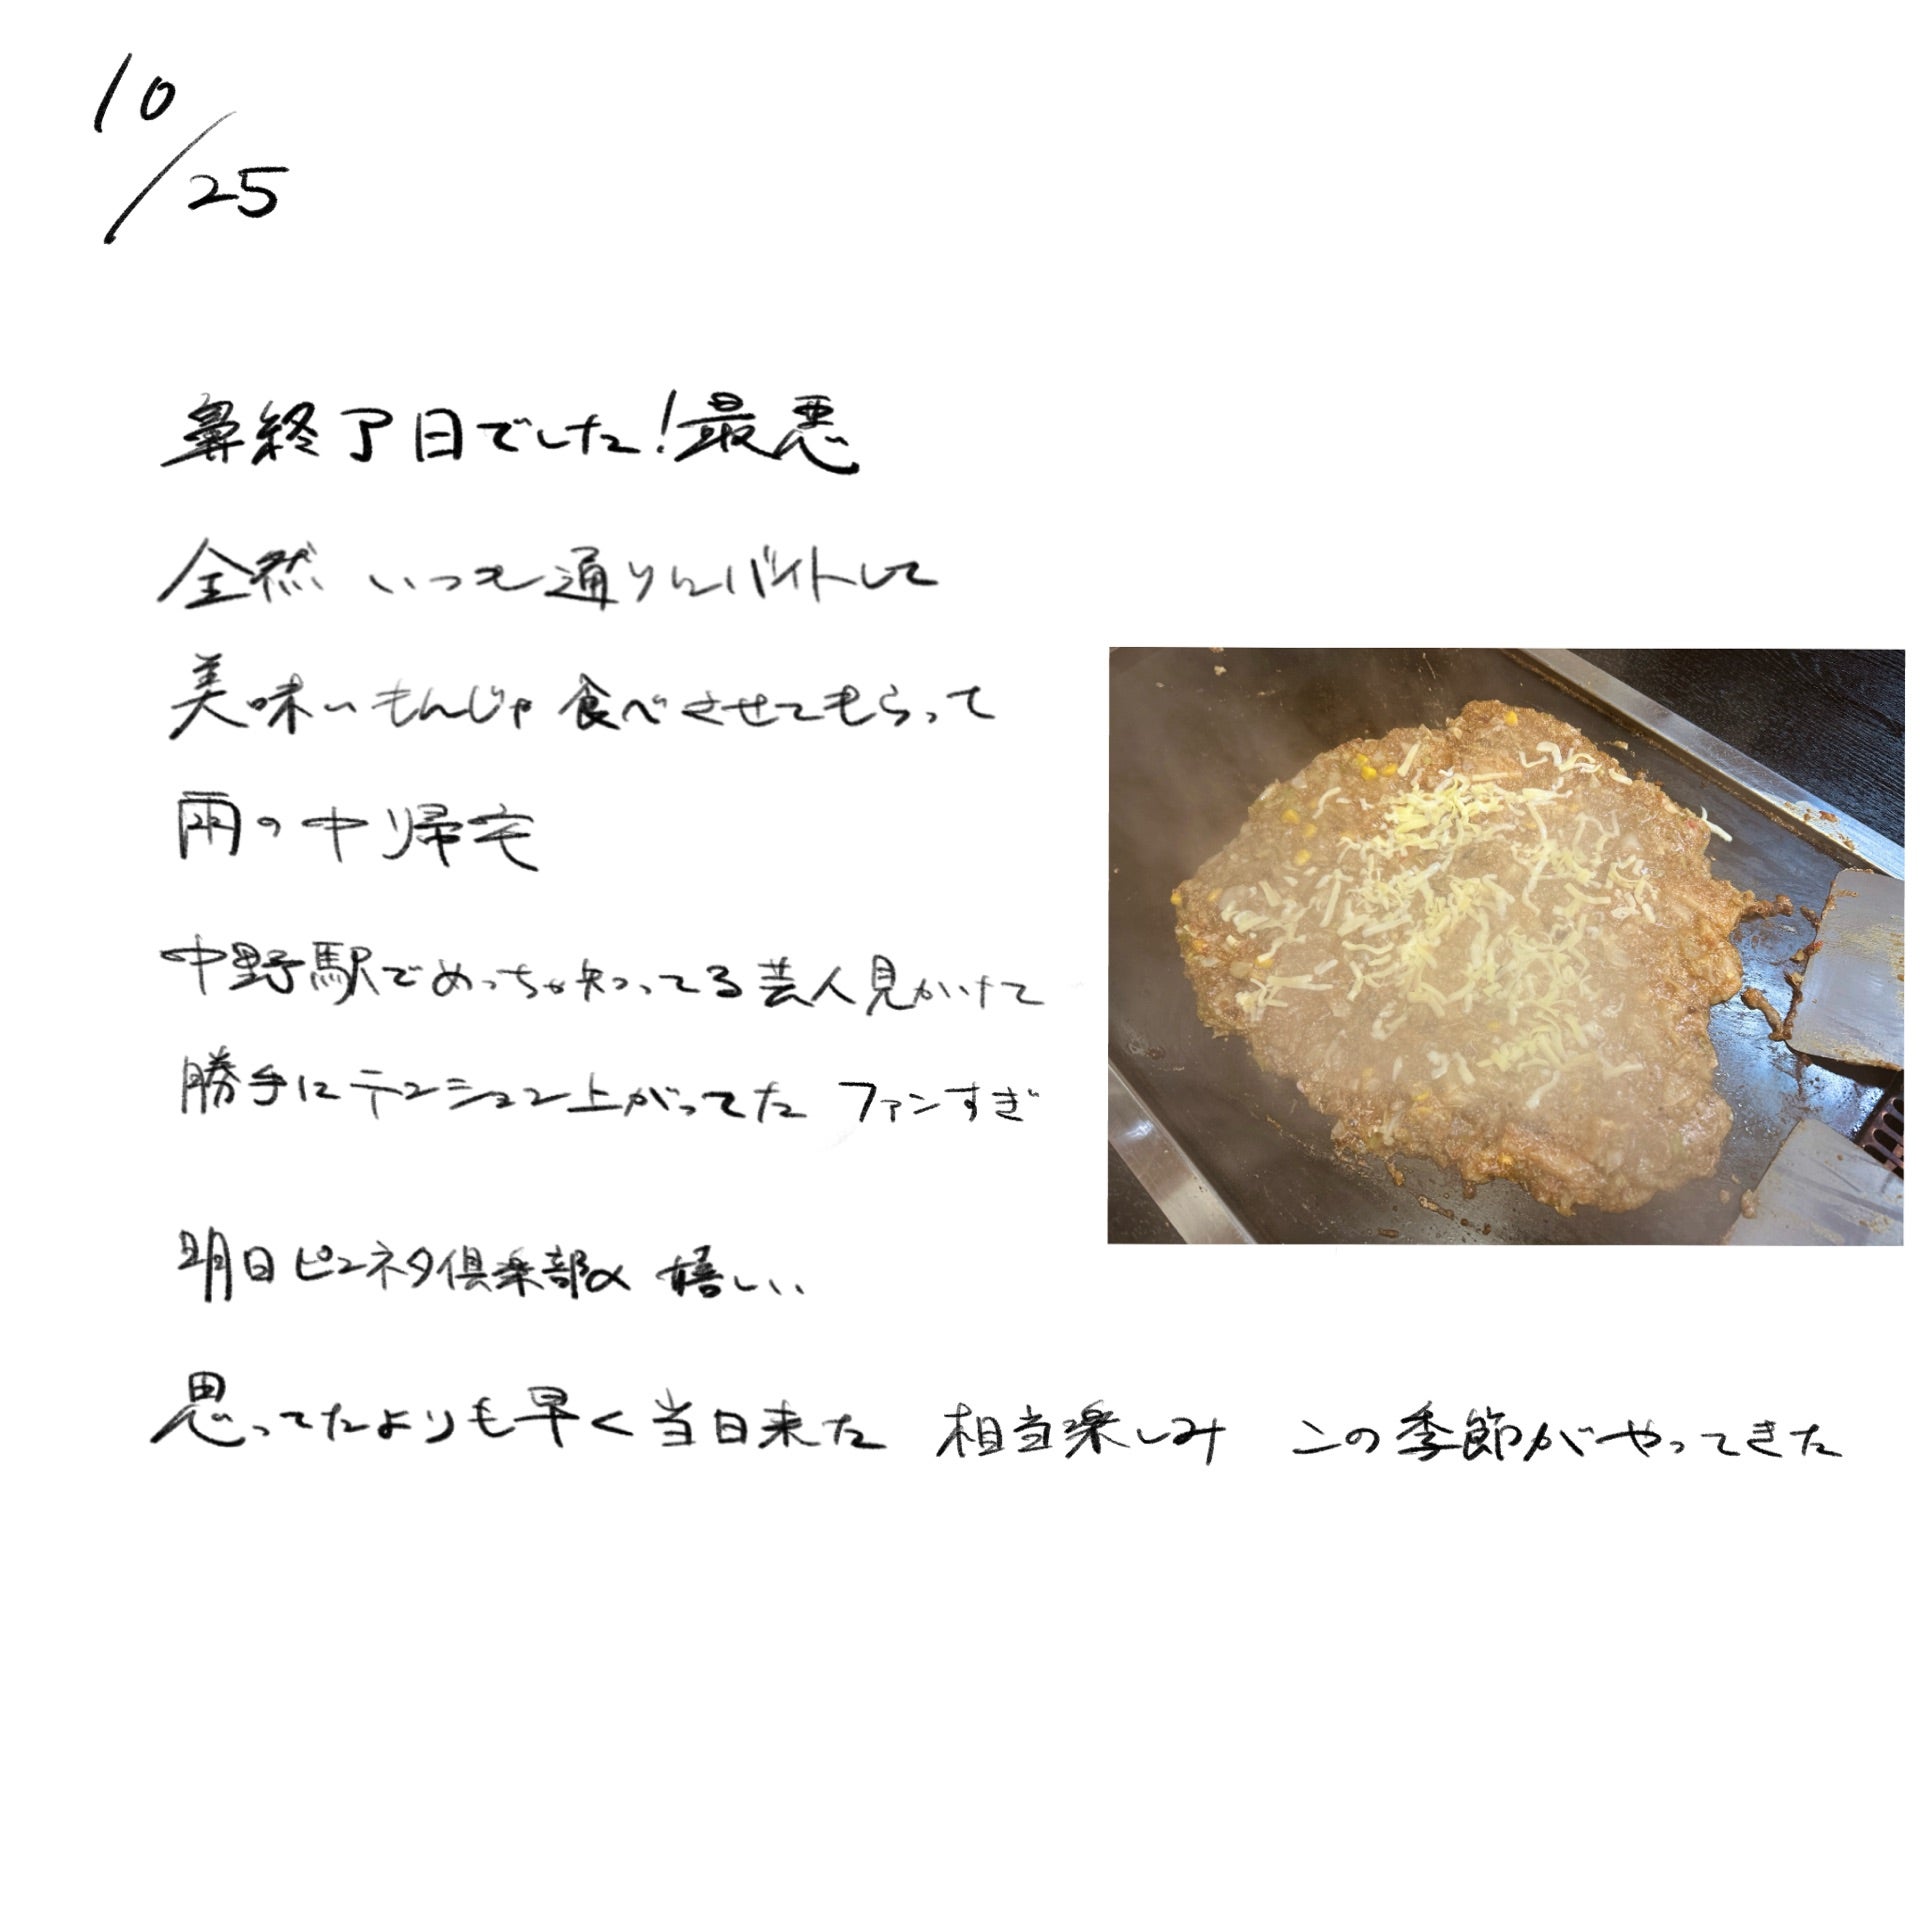 10/25
鼻終了日でした!最悪
全然 いつも通りにバイトして
美味いもんじゃ食べさせてもらって
雨の中帰宅
中野駅でめっちゃ知ってる芸人見かけて
勝手にテンション上がってた ファンすぎ
明日ピンネタ倶楽部α 嬉しい
思ってたよりも早く当日来た 相当楽しみ この季節がやってきた